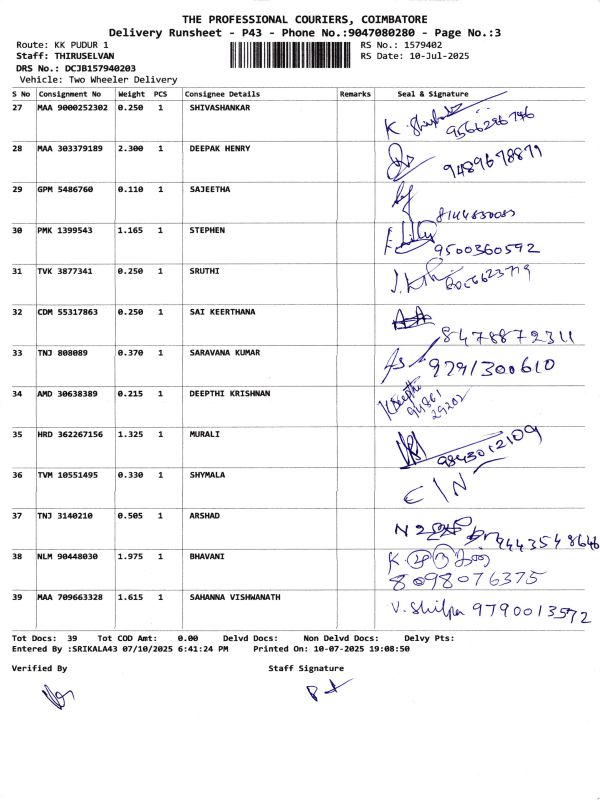 THE PROFESSIONAL COURIERS, COIMBATORE
Delivery Runsheet - P43 - Phone No.:9047080280 - Page No.:3
Route: KK PUDUR 1 RS No.: 1579402
Staff: THIRUSELVAN RS Date: 10-Jul-2025
DRS No.: DCJB157940203
Vehicle: Two Wheeler Delivery
S No Consignment No Weight PCS Consignee Details Remarks Seal & Signature
27 MAA 9000252302 0.250 1 SHIVASHANKAR
9566296746
28 MAA 303379189 2.300 1 DEEPAK HENRY
9489678879
29 GPM 5486760 0.110 1 SAJEETHA
30 PMK 1399543 1.165 1 STEPHEN
9500360592
31 TVK 3877341 0.250 1 SRUTHI
32 CDM 55317863 0.250 1 SAI KEERTHANA
8478872311
33 TNJ 808089 0.370 1 SARAVANA KUMAR
9791300610
34 AMD 30638389 0.215 1 DEEPTHI KRISHNAN
K Deepthi
94861
29202
35 HRD 362267156 1.325 1 MURALI
9843012109
36 TVM 10551495 0.330 1 SHYMALA
37 TNJ 3140210 0.505 1 ARSHAD
9443548646
38 NLM 90448030 1.975 1 BHAVANI
8098076375
39 MAA 709663328 1.615 1 SAHANNA VISHWANATH
V. Shilpa 9790013572
Tot Docs: 39 Tot COD Amt: 0.00 Delvd Docs: Non Delvd Docs: Delvy Pts:
Entered By :SRIKALA43 07/10/2025 6:41:24 PM Printed On: 10-07-2025 19:08:50
Verified By Staff Signature